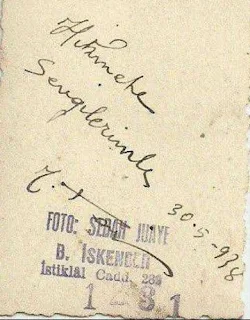 Hikmete
Sevgilerimle
30-5-938
FOTO: SEBAH JUAYE
B. İSKENDER
İstiklâl Cadd.
1 - 1